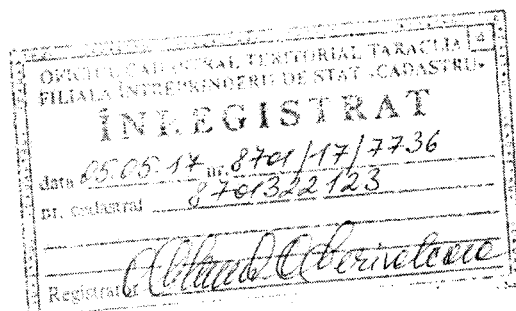 4
OFICIUL CADASTRAL TERITORIAL TARACLIA
FILIALA ÎNTREPRINDERII DE STAT „CADASTRU”
ÎNREGISTRAT
data 05.05.17 nr. 8701/17/7736
nr. cadastral 8701322123
Registrator